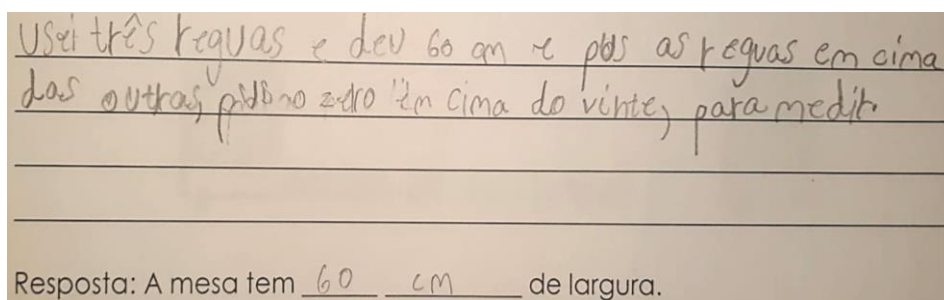 Usei três reguas e deu 60 cm e pus as reguas em cima
das outras, no zero em cima do vinte, para medir.
Resposta: A mesa tem 60 cm de largura.